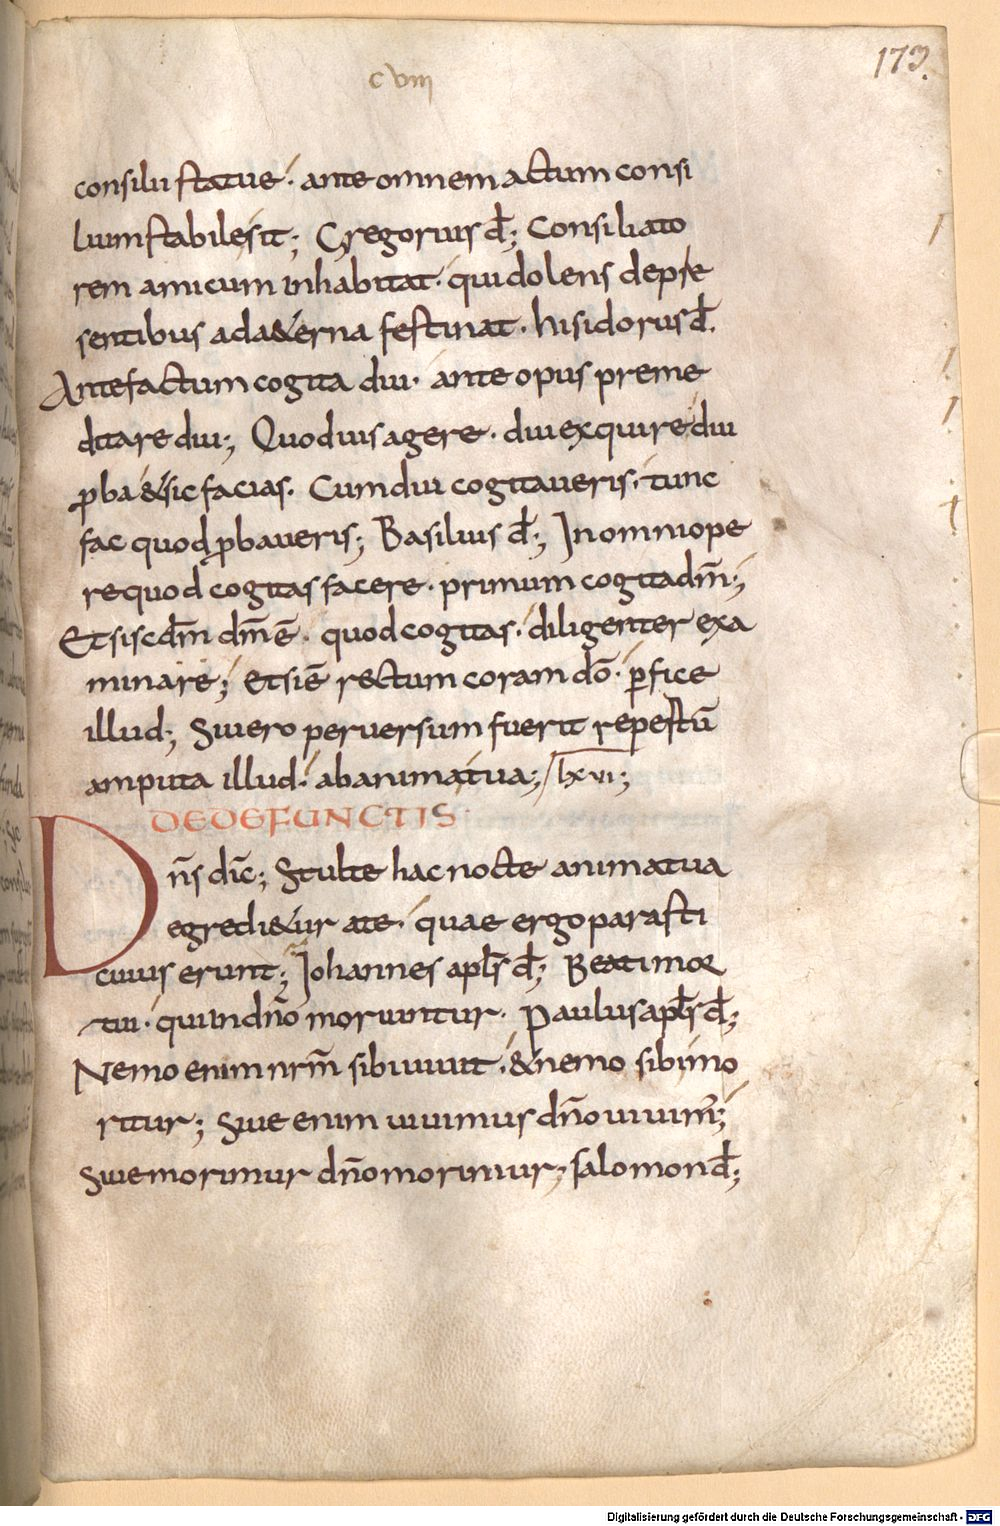 173.
c viii
consilii statue · ante omnem actum consi
lium stabile sit; Gregorius d̄; Consiliato
rem amicum inhabitat · qui dolens de pre
sentibus ad a&erna festinat · hisidorus d̄.
Ante factum cogita diu · ante opus preme
ditare diu; Quod uis agere · diu exquire diu
ꝓba & sic facias. Cum diu cogitaueris · tunc
fac quod ꝓbaueris; Basilius d̄; In omni ope
re quod cogitas facere · primum cogita dm̄;
Et si scdm̄ dm̄ ē · quod cogitas · diligenter exa
minare; Et si ē rectum coram dō · ꝑfice
illud; Si uero peruersum fuerit repertū
amputa illud · ab anima tua; lxvi;
DE DEFUNCTIS
Dn̄s dic̄; Stulte hac nocte anima tua
egredi&ur a te · quae ergo parasti
cuius erunt; Iohannes apls̄ d̄; Beati mor
tui · qui in dn̄o moriuntur · Paulus apls̄ d̄;
Nemo enim nrm̄ sibi uiuit · & nemo sibi mo
ritur; Siue enim uiuimus dn̄o uiuim̄;
Siue morimur dn̄o morimur; salomon d̄;
Digitalisierung gefördert durch die Deutsche Forschungsgemeinschaft - DFG